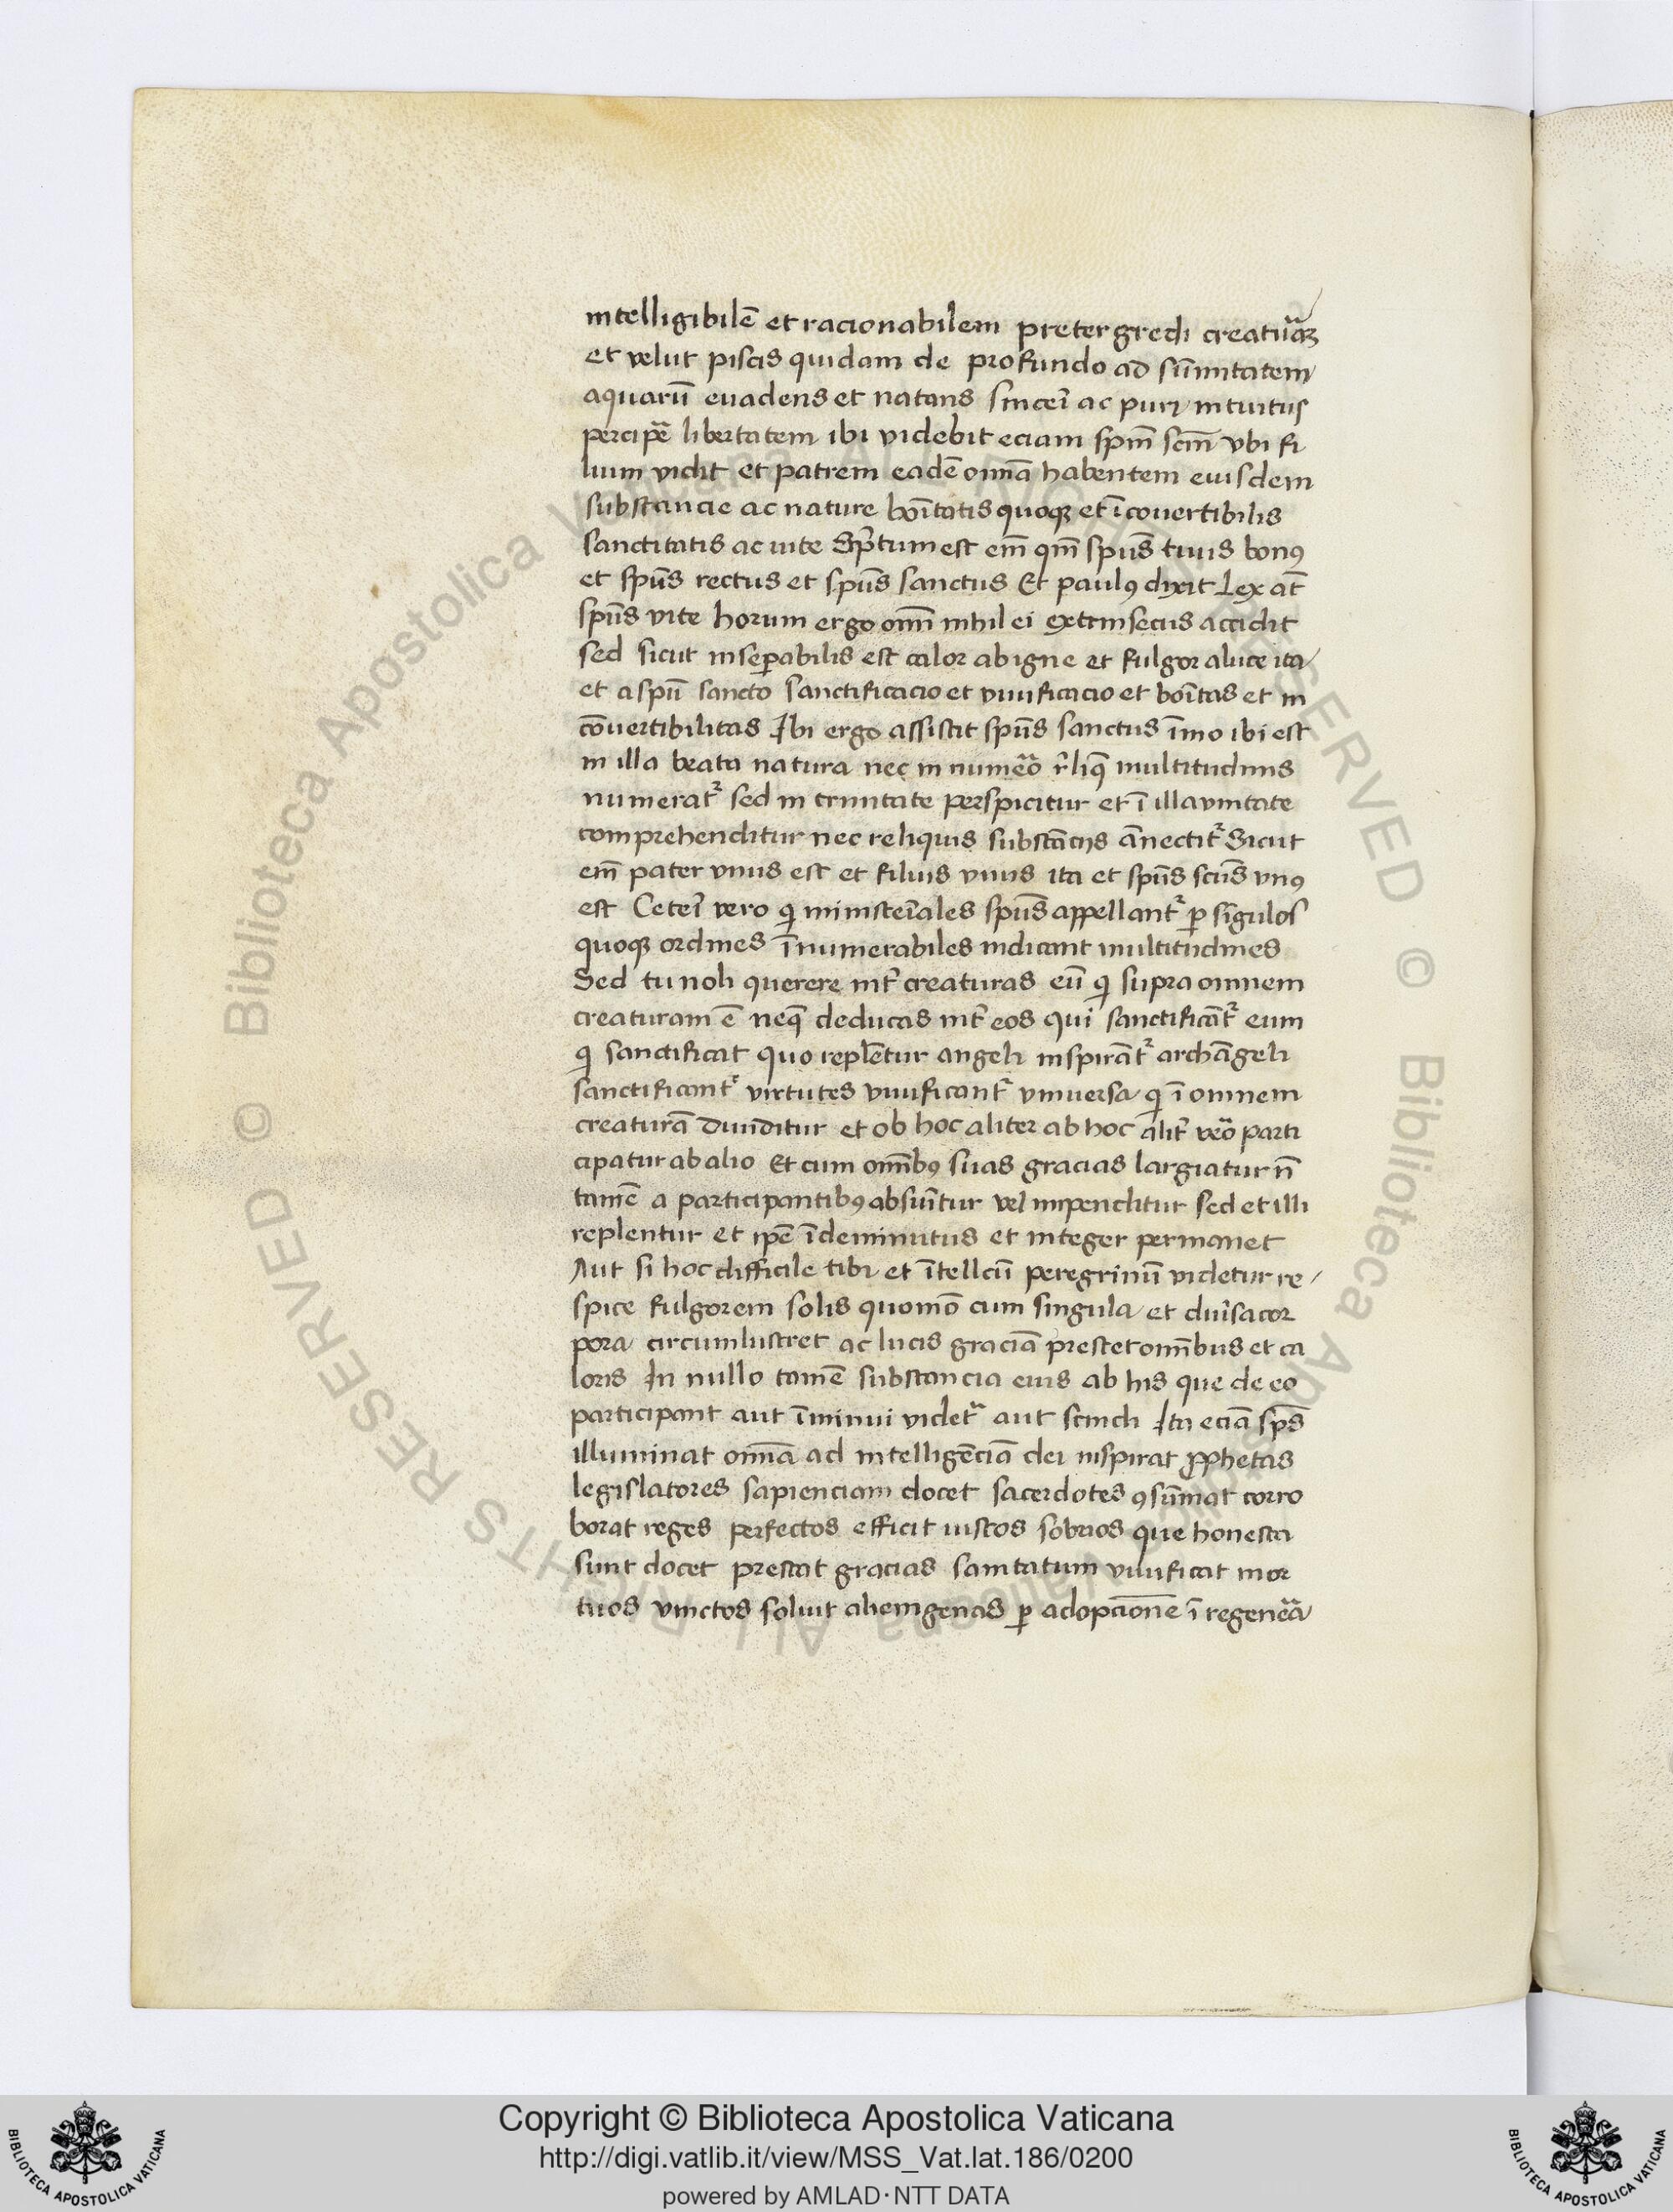 intelligibilē et racionabilem pretergredi creatūaꝝ
et velut piscis quidam de profundo ad sūmitatem
aquarū euadens et natans sinceri ac puri intuitus
percipe libertatem ibi videbit eciam spm̄ scm̄ vbi fi
lium vidit et patrem eadē omīa habentem eiusdem
substancie ac nature boītatis quoqꝫ et īcouertibilis
sanctitatis ac uite Sp̄tum est em̄ qm̄ spūs tuus bonꝯ
et spūs rectus et spūs sanctus Et paulꝯ dixit Lex at̄
spūs vite horum ergo om̄i nihil ei extrinsecus accidit
sed sicut insepabilis est calor ab igne et fulgor a luce ita
et a spū sancto sanctificacio et viuificacio et boītas et in
cōuertibilitas Ibi ergo assistit spūs sanctus īmo ibi est
in illa beata natura nec in numeō r̄liqꝫ multitudinis
numerat᷑ sed in trinitate perspicitur et ī illa vnitate
comprehenditur nec reliquis substācijs ānectit᷑ Sicut
em̄ pater vnus est et filius vnus ita et spūs scūs vnꝯ
est Ceteri vero qi ministeriales spūs appellant᷑ ꝑ sīgulos
quoqꝫ ordines īnumerabiles indicant multitudines
Sed tu noli querere int̄ creaturas eū qi supra omnem
creaturam ē neqꝫ deducas int̄ eos qui sanctificāt᷑ eum
qi sanctificat quo replētur angeli inspirāt᷑ archāgeli
sanctificant᷑ virtutes viuificant᷑ vniuersa qi ī omnem
creaturā diuiditur et ob hoc aliter ab hoc alit̄ veō parti
cipatur ab alio Et cum om̄ibꝯ suas gracias largiatur n̄
tamē a participantibꝯ absūitur vel inpenditur sed et illi
replentur et ipē īdeminutus et integer permanet
Aut si hoc difficile tibi et ītellcū peregrinū videtur re
spice fulgorem solis quomō cum singula et duīsa cor
pora circumlustret ac lucis graciā prestet om̄ibus et ca
loris In nullo tamē substancia eius ab his que de eo
participant aut īminui videt᷑ aut scindi Ita eciā sps̄
illuminat omīa ad intelligēciā dei inspirat ꝓphetas
legislatores sapienciam docet sacerdotes ꝯsūmat corro
borat reges perfectos efficit iustos sobrios que honesta
sunt docet prestat gracias sanitatum viuificat mor
tuos vinctos soluit alienigenas ꝑ adopcionē ī regeneā
Copyright © Biblioteca Apostolica Vaticana
http://digi.vatlib.it/view/MSS_Vat.lat.186/0200
powered by AMLAD·NTT DATA